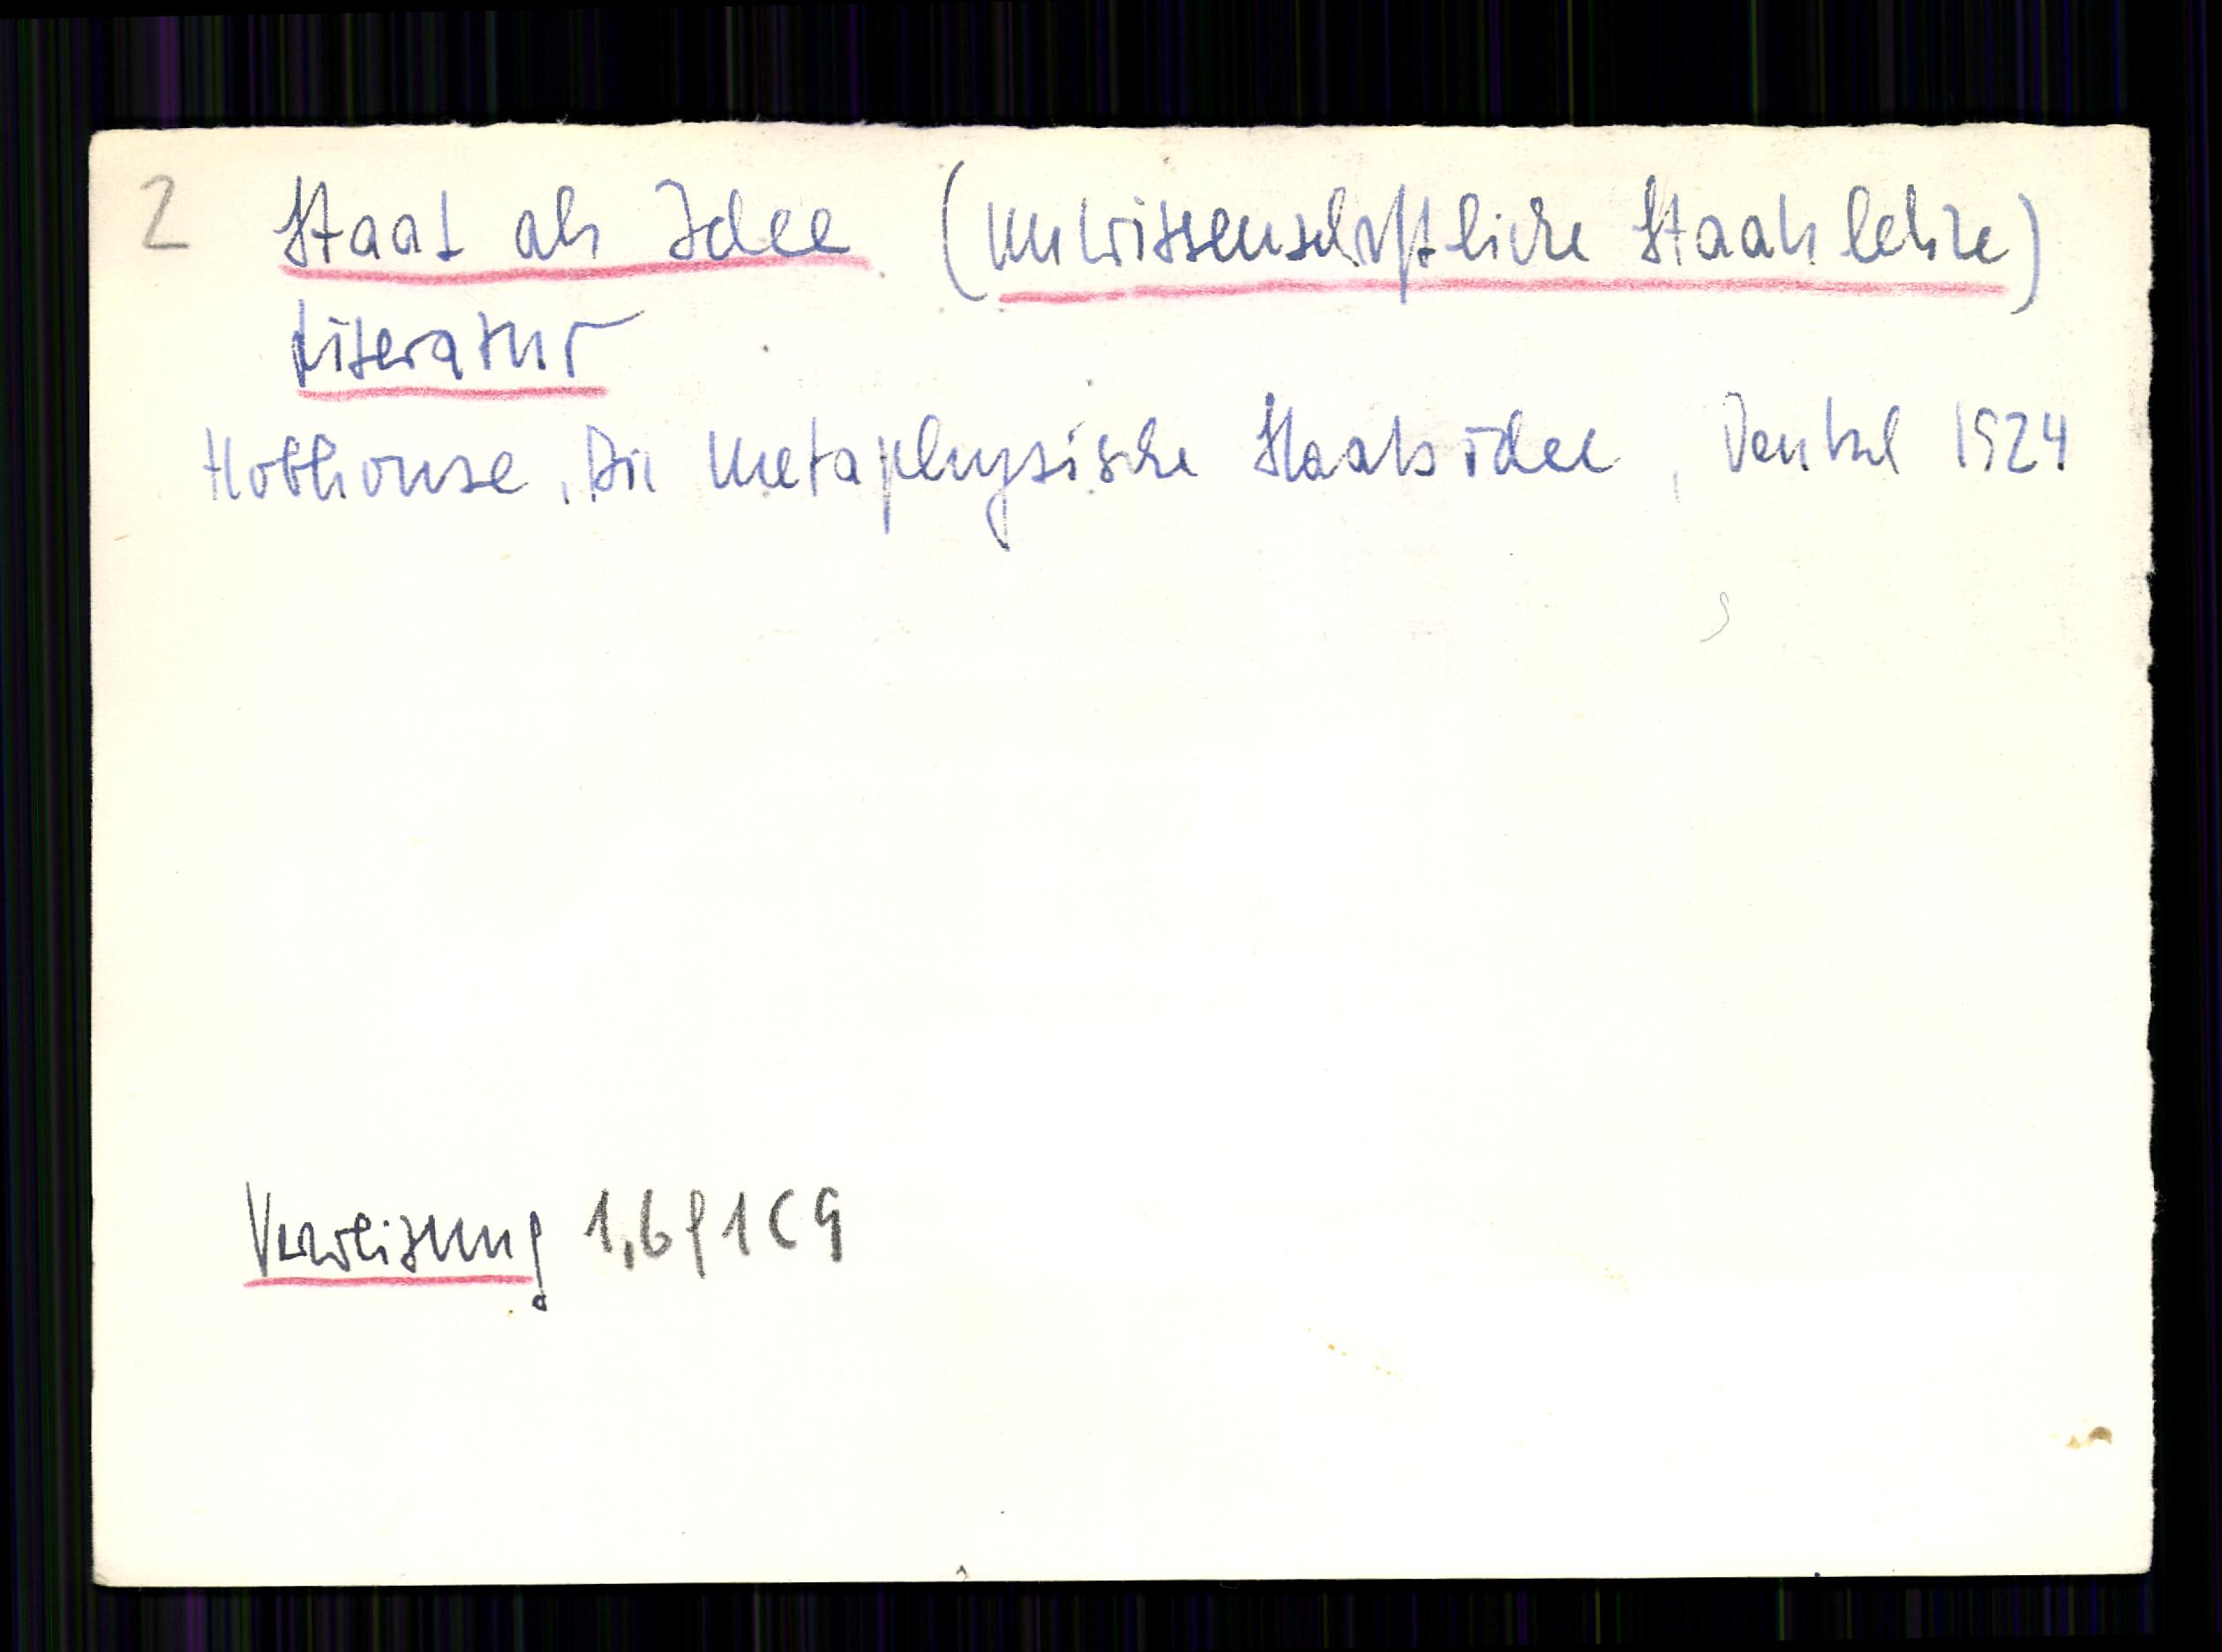 2 Staat als Idee (unwissenschaftliche Staatslehre)
Literatur
Hobhouse, Die metaphysische Staatsidee, Deutsch 1924
Verweisung 1,6f1C9